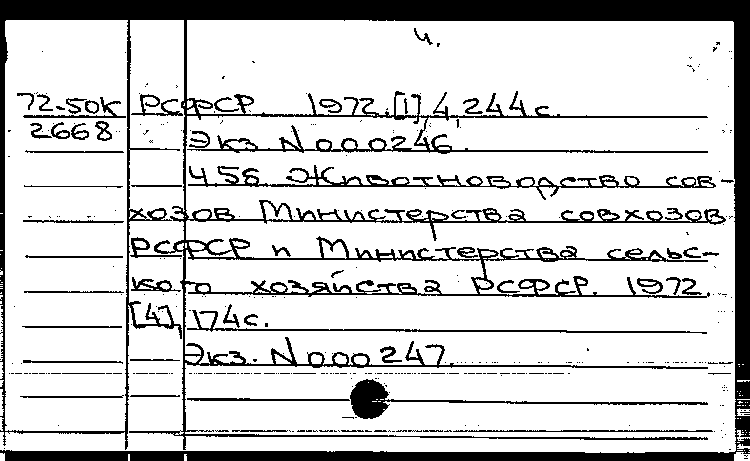 ч.
72-50к РСФСР 1972. [1], 4, 244 с.
2668 Экз N 000246.
ч. 5б Животноводство сов-
хозов Министерства совхозов
РСФСР и Министерства сельс-
кого хозяйства РСФСР. 1972.
[4], 174 с.
Экз. N 000247.